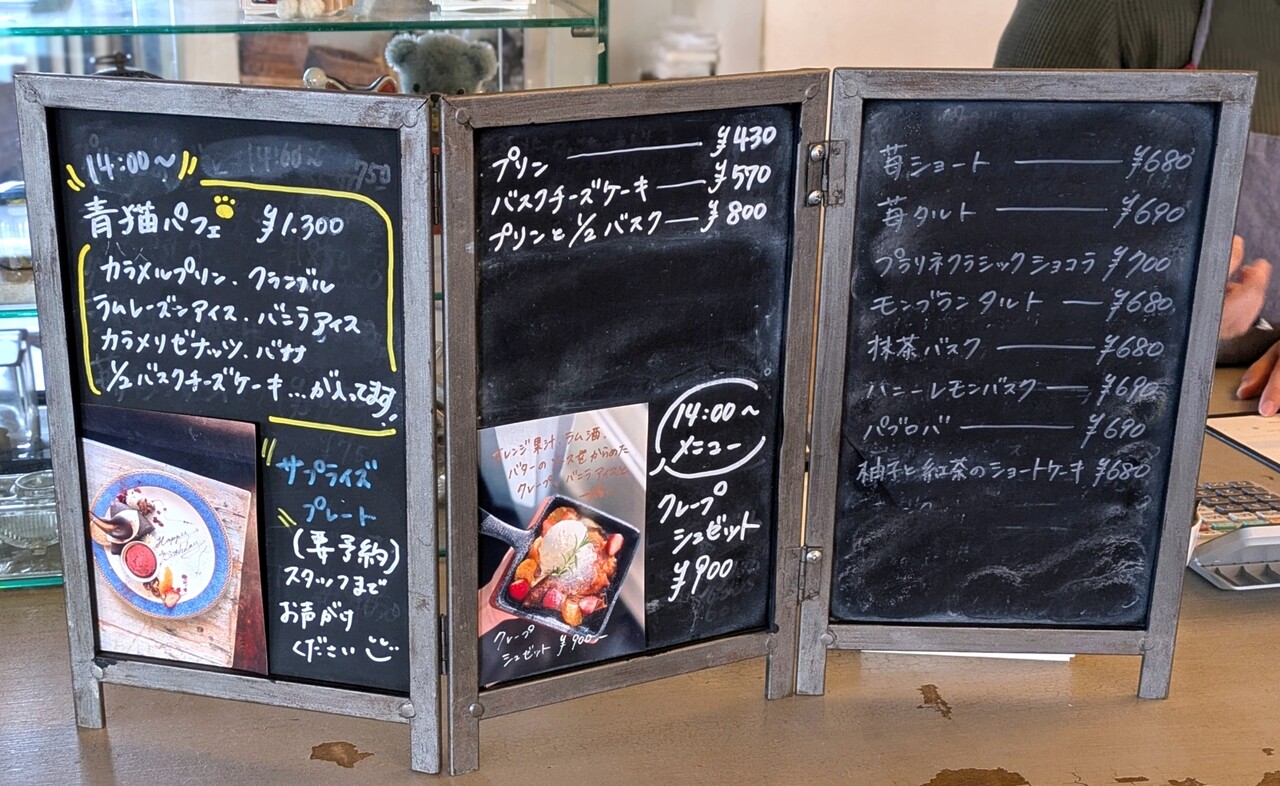 14:00〜
青猫パフェ ¥1.300
カラメルプリン、クランブル
ラムレーズンアイス、バニラアイス
カラメリゼナッツ、バナナ
1/2バスクチーズケーキ...が入ってます!
サプライズ
プレート
(要予約)
スタッフまで
お声がけ
ください
Happy
Birthday
プリン ¥430
バスクチーズケーキ ¥570
プリンと1/2バスク ¥800
オレンジ果汁、ラム酒、
バターのソースをからめた
クレープ、バニラアイスと
クレープ
シュゼット ¥900-
14:00〜
メニュー
クレープ
シュゼット
¥900
苺ショート ¥680
苺タルト ¥690
プラリネクラシックショコラ ¥700
モンブランタルト ¥680
抹茶バスク ¥680
ハニーレモンバスク ¥690
パブロバ ¥690
柚子と紅茶のショートケーキ ¥680